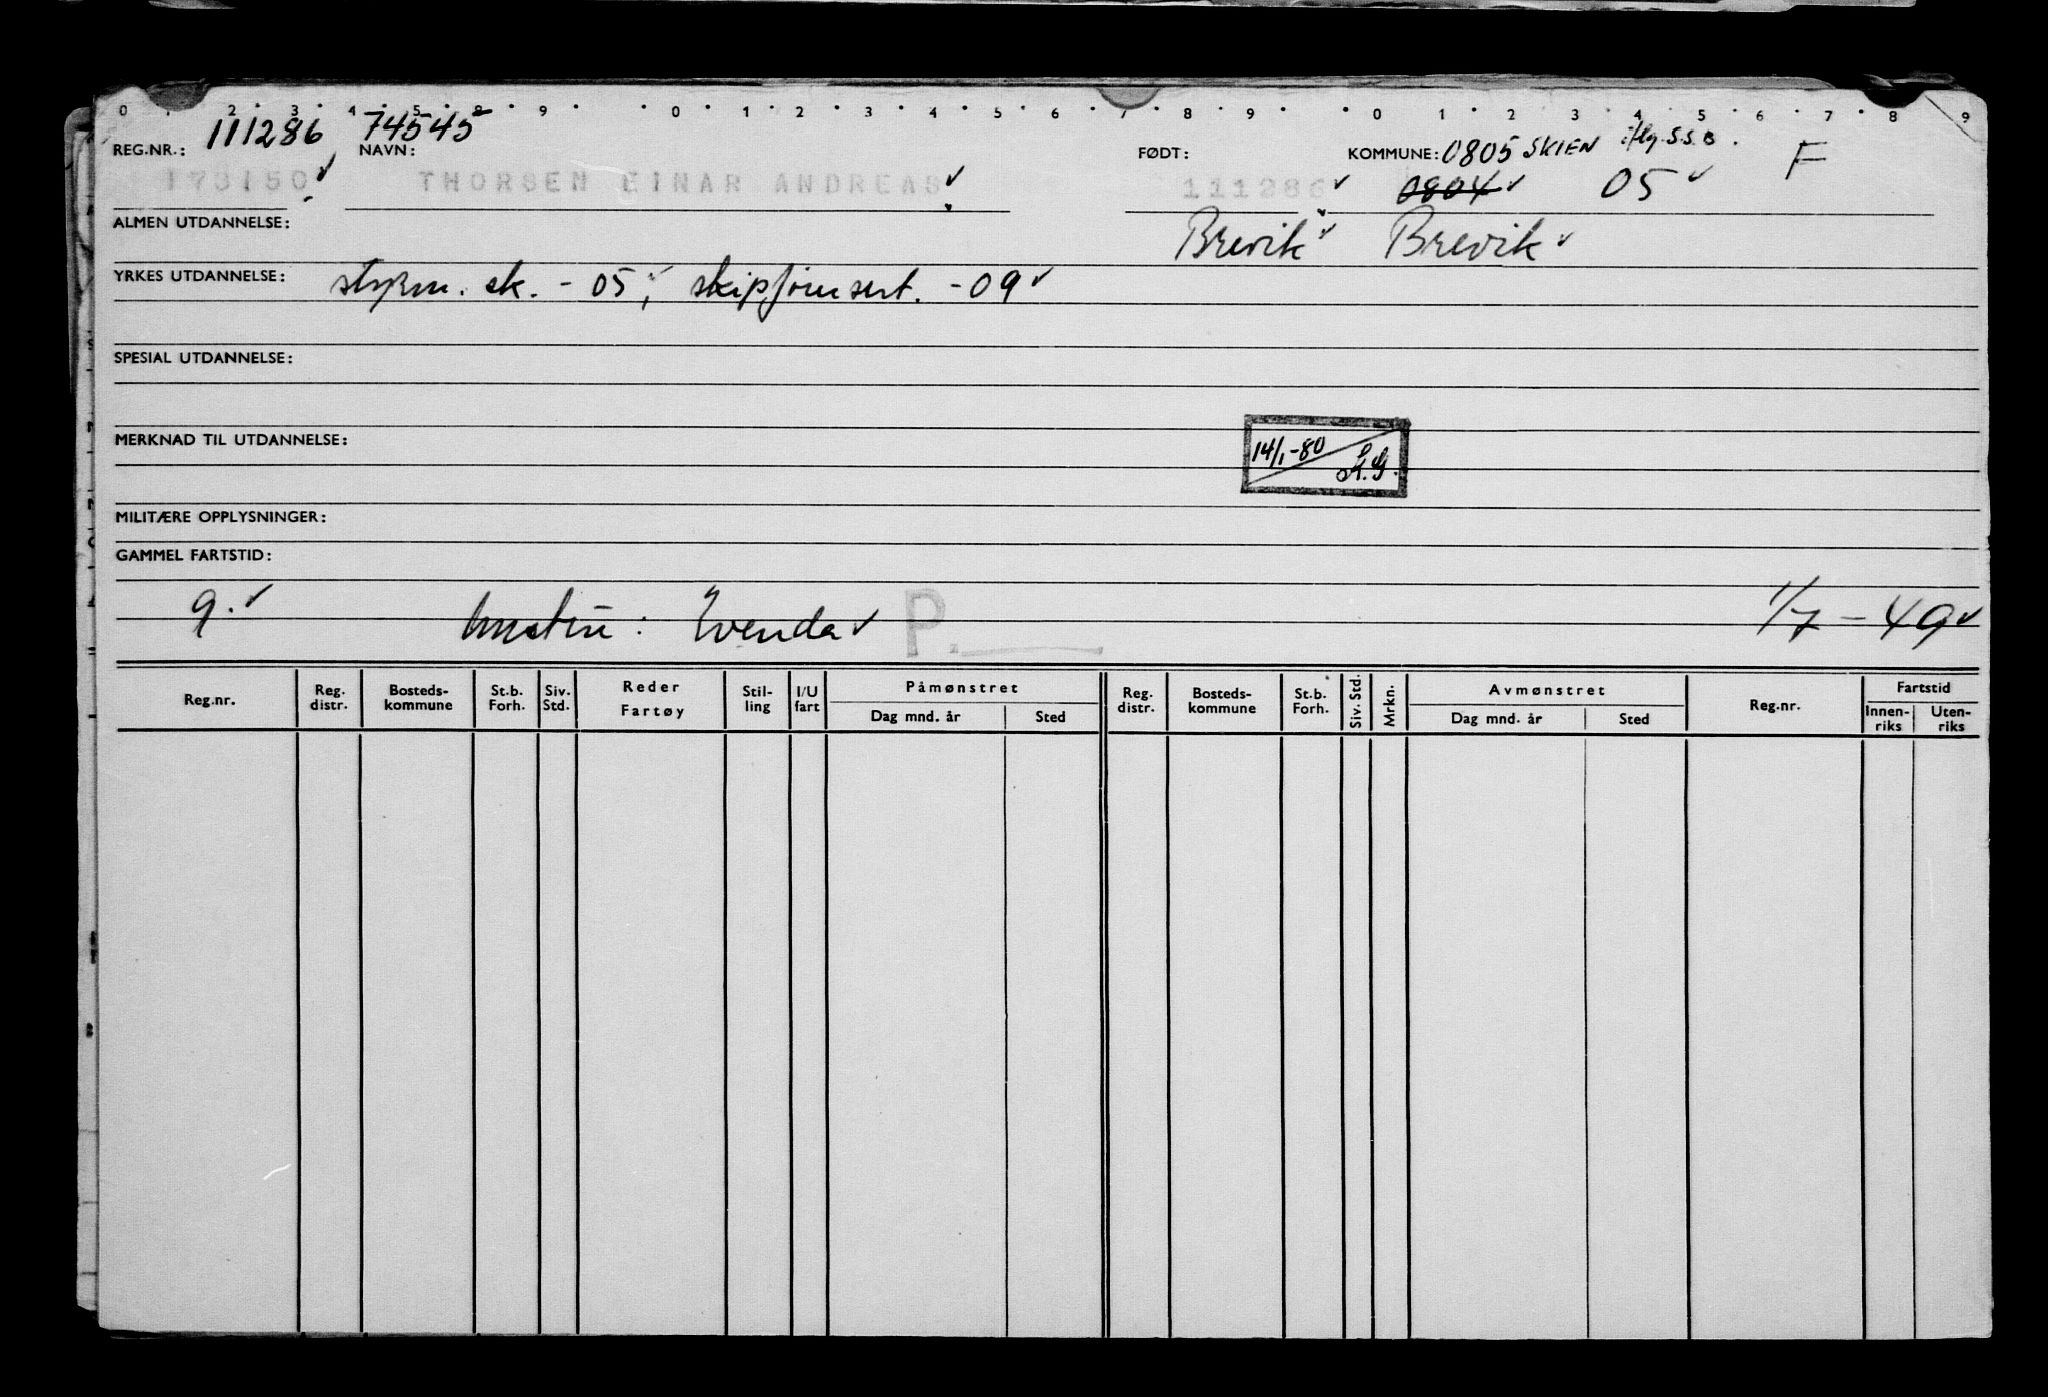 0 . 2 . 3 . 4 . 5 . 8 . 9 . . 0 . 1 . 2 . 3 . 4 . 5 . 6 . 7 . 8 . 9 . . 0 . 1 . 2 . 3 . 4 . 5 . 6 . 7 . 8 . 9
REG.NR.: 111286 74545
NAVN: FØDT: KOMMUNE: 0805 SKIEN iflg. S.S.B. F
175150 THORSEN EINAR ANDREAS 111286 0804 05
ALMEN UTDANNELSE: Brevik Brevik
YRKES UTDANNELSE: styrm. sk. - 05; skipsførersert. - 09
SPESIAL UTDANNELSE:
MERKNAD TIL UTDANNELSE: 14/1-80 K.G.
MILITÆRE OPPLYSNINGER:
GAMMEL FARTSTID:
9. hustru: Evenda P. 1/7 - 49
Reg.nr. Reg. distr. Bosteds-kommune St.b. Forh. Siv. Std. Reder Fartøy Stil-ling I/U fart Påmønstret Dag mnd. år Sted Reg. distr. Bosteds-kommune St.b. Forh. Siv. Std. Mrkn. Avmønstret Dag mnd. år Sted Reg.nr. Fartstid Innen-riks Uten-riks